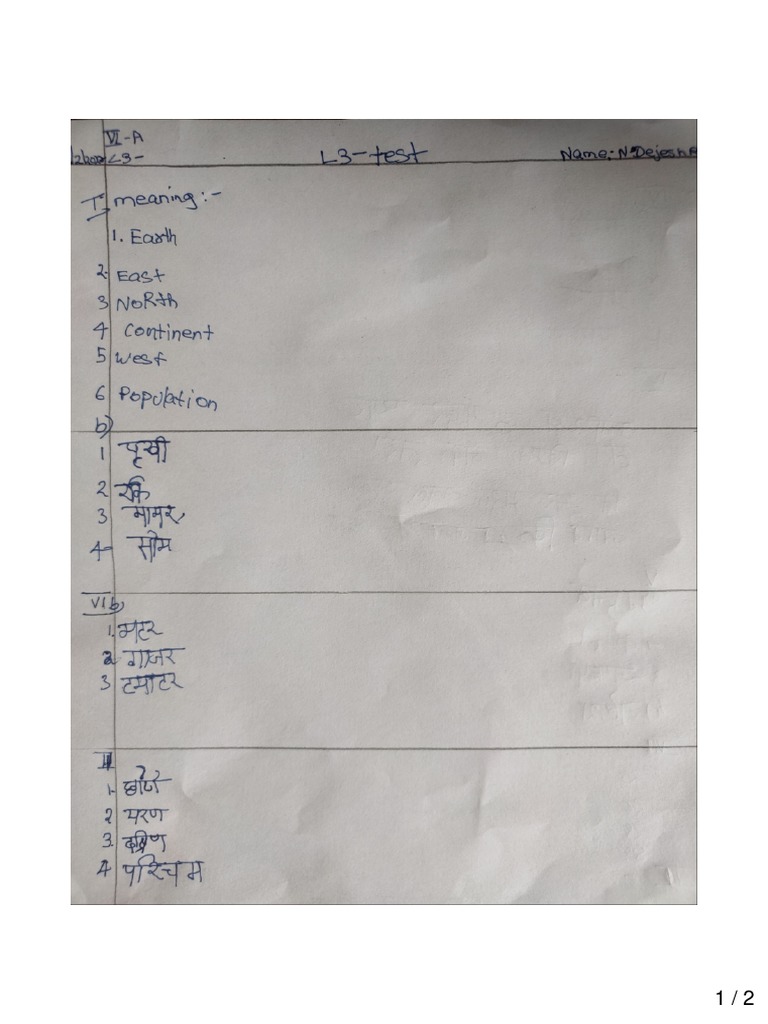 VI-A
L3-
L3-test
Name:- N Dejesh
I meaning:-
1. Earth
2. East
3 NoRth
4 Continent
5 West
6 Population
b)
1 पृथ्वी
2
3
4- सोम
VI b)
1. मटर
2 गाजर
3 टमाटर
II
1-
2 चरण
3.
4 पश्चिम
1 / 2